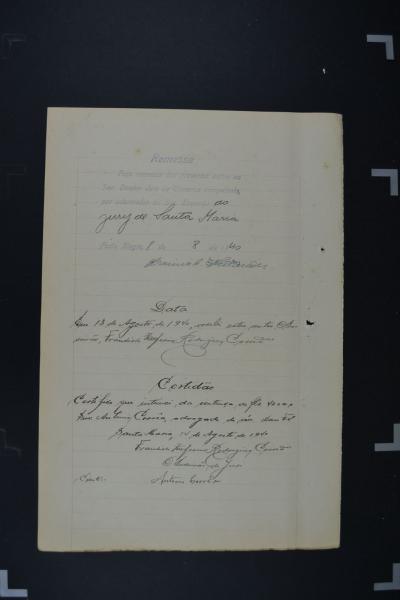 Remessa
Faço remessa dos presentes autos ao
Snr. Doutor Juiz da Comarca
por intermedio do Snr. Escrivão do
jury de Santa Maria
Porto Alegre, 1 de 8 de 1940
Data
Em 13 de Agosto de 1940, recebi estes autos. O Es-
crivão, Francisco Rodrigues Corrêa
Certidão
Certifico que intimei da sentença de fls
Antonio Corrêa, advogado do réo. dou fé
Santa Maria, 14 de Agosto de 1940
Francisco Rodrigues Corrêa
O Escrivão do Jury
Antonio Corrêa